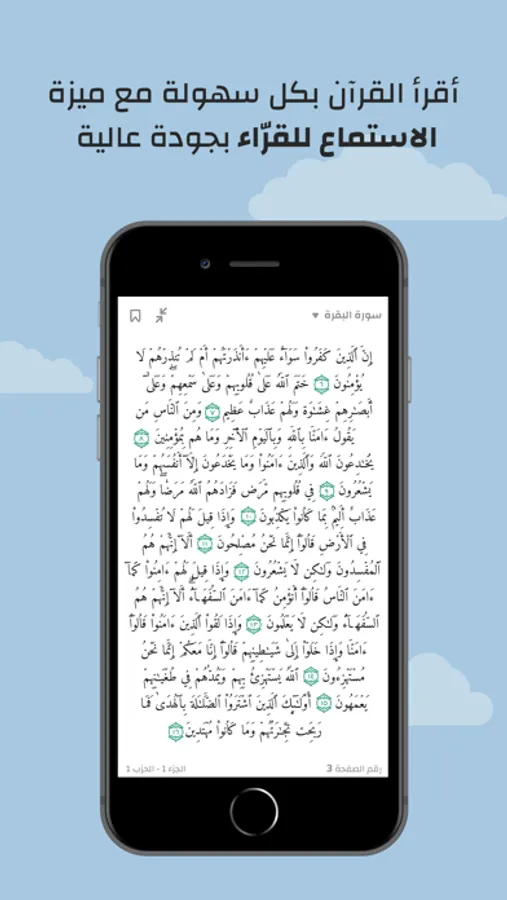 أقرأ القرآن بكل سهولة مع ميزة
الاستماع للقرّاء بجودة عالية
سورة البقرة ▼
إِنَّ ٱلَّذِينَ كَفَرُوا۟ سَوَآءٌ عَلَيْهِمْ ءَأَنذَرْتَهُمْ أَمْ لَمْ تُنذِرْهُمْ لَا
يُؤْمِنُونَ ٦ خَتَمَ ٱللَّهُ عَلَىٰ قُلُوبِهِمْ وَعَلَىٰ سَمْعِهِمْ ۖ وَعَلَىٰٓ
أَبْصَـٰرِهِمْ غِشَـٰوَةٌ وَلَهُمْ عَذَابٌ عَظِيمٌ ٧ وَمِنَ ٱلنَّاسِ مَن
يَقُولُ ءَامَنَّا بِٱللَّهِ وَبِٱلْيَوْمِ ٱلْـَٔاخِرِ وَمَا هُم بِمُؤْمِنِينَ ٨
يُخَـٰدِعُونَ ٱللَّهَ وَٱلَّذِينَ ءَامَنُوا۟ وَمَا يَخْدَعُونَ إِلَّآ أَنفُسَهُمْ وَمَا
يَشْعُرُونَ ٩ فِى قُلُوبِهِم مَّرَضٌ فَزَادَهُمُ ٱللَّهُ مَرَضًا ۖ وَلَهُمْ
عَذَابٌ أَلِيمٌۢ بِمَا كَانُوا۟ يَكْذِبُونَ ١٠ وَإِذَا قِيلَ لَهُمْ لَا تُفْسِدُوا۟
فِى ٱلْأَرْضِ قَالُوٓا۟ إِنَّمَا نَحْنُ مُصْلِحُونَ ١١ أَلَآ إِنَّهُمْ هُمُ
ٱلْمُفْسِدُونَ وَلَـٰكِن لَّا يَشْعُرُونَ ١٢ وَإِذَا قِيلَ لَهُمْ ءَامِنُوا۟ كَمَآ
ءَامَنَ ٱلنَّاسُ قَالُوٓا۟ أَنُؤْمِنُ كَمَآ ءَامَنَ ٱلسُّفَهَآءُ ۗ أَلَآ إِنَّهُمْ هُمُ
ٱلسُّفَهَآءُ وَلَـٰكِن لَّا يَعْلَمُونَ ١٣ وَإِذَا لَقُوا۟ ٱلَّذِينَ ءَامَنُوا۟ قَالُوٓا۟
ءَامَنَّا وَإِذَا خَلَوْا۟ إِلَىٰ شَيَـٰطِينِهِمْ قَالُوٓا۟ إِنَّا مَعَكُمْ إِنَّمَا نَحْنُ
مُسْتَهْزِءُونَ ١٤ ٱللَّهُ يَسْتَهْزِئُ بِهِمْ وَيَمُدُّهُمْ فِى طُغْيَـٰنِهِمْ
يَعْمَهُونَ ١٥ أُو۟لَـٰٓئِكَ ٱلَّذِينَ ٱشْتَرَوُا۟ ٱلضَّلَـٰلَةَ بِٱلْهُدَىٰ فَمَا
رَبِحَت تِّجَـٰرَتُهُمْ وَمَا كَانُوا۟ مُهْتَدِينَ ١٦
رقم الصفحة 3
الجزء 1 - الحزب 1